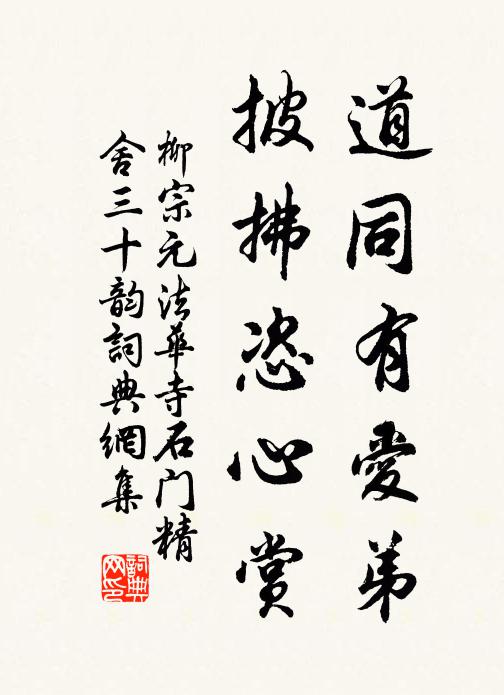 道同有愛弟
披拂恣心賞
柳宗元法華寺石门精
舍三十韵詞典網集
詞典
网印